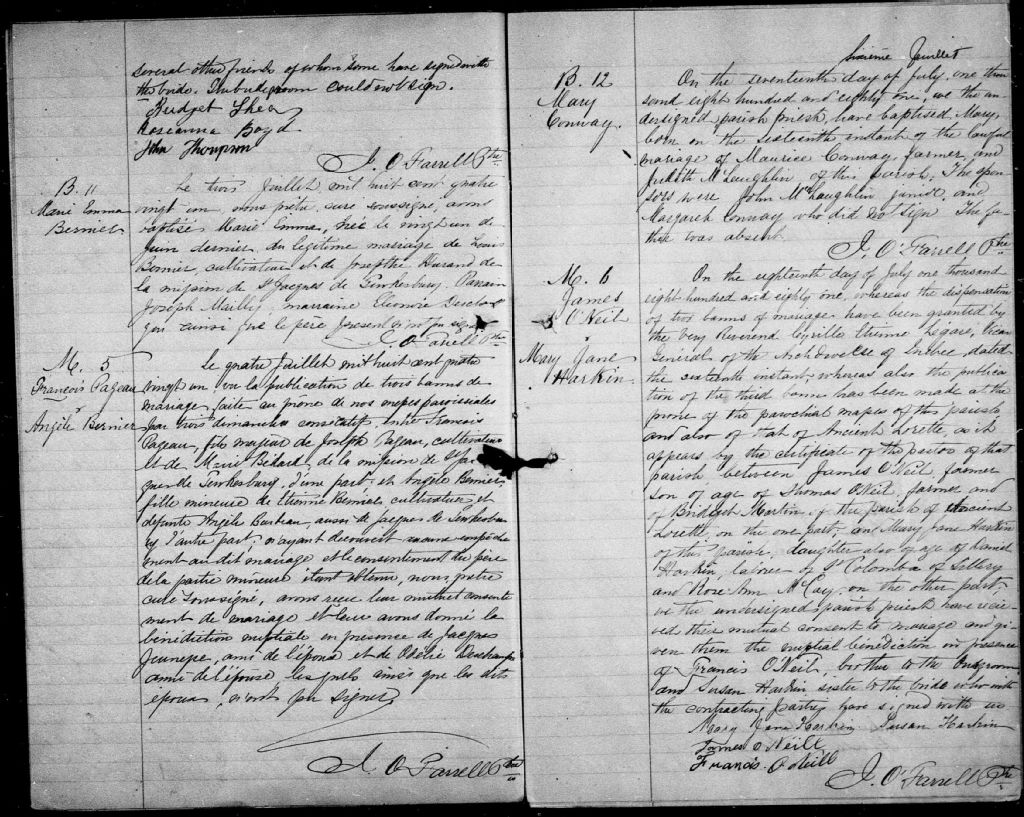 several other friends of whom some have signed with
the bride. The bridegroom could not sign.
Bridget Shea
Roseanna Boyd
John Thompson
J. O'Farrell Ptre
B. 11
Marie Emma
Bernier
Le trois Juillet mil huit cent quatre
vingt un, nous prêtre, curé soussigné, avons
baptisé Marie Emma, née le vingt un de
Juin dernier du légitime mariage de Louis
Bernier, cultivateur et de Josephte Durand de
la mission de St Jacques de Tewkesbury. Parrain
Joseph Mailly, marraine Eléonore
qui ainsi que le père présent n'ont pu signer
J. O'Farrell Ptre
M. 5
François Pageau
&
Angèle Bernier
Le quatre Juillet mil huit cent quatre
vingt un vu la publication de trois bans de
mariage faite au prône de nos messes paroissiales
par trois dimanches consécutifs entre Francois
Pageau, fils majeur de Joseph Pageau, cultivateur
et de Marie Bédard, de la mission de St Jac
ques de Tewkesbury, d'une part; et Angèle Bernier,
fille mineure de Etienne Bernier cultivateur et
défunte Angèle, aussi de Jacques de Tewkesbu
ry d'autre part; n'ayant découvert aucun empêche
ment au dit mariage et le consentement du père
de la partie mineure étant obtenu, nous, prêtre
curé soussigné, avons reçu leur mutuel consente
ment de mariage et leur avons donné la
bénédiction nuptiale en présence de Jacques
, ami de l'époux et de Odélie Deschamps
amie de l'épouse lesquels ainsi que les dits
époux, n'ont pu signer
J. O'Farrell Ptre
Juillet
B. 12
Mary
Conway.
On the seventeenth day of July, one thou
sand eight hundred and eighty one, we the un
dersigned parish priest, have baptised Mary,
born on the sixteenth instant of the lawful
marriage of Maurice Conway, farmer, and
Judith McLaughlin of this parish. The spon
sors were John McLaughlin junior, and
Margaret Conway who did not sign. The fa
ther was absent.
J. O'Farrell Ptre
M. 6
James
O'Neil
&
Mary Jane
Harkin
On the eighteenth day of July one thousand
eight hundred and eighty one, whereas the dispensation
of two banns of marriage have been granted by
the Very Reverend Cyrille Etienne Legare, Vicar
General of the Archdiocese of Quebec, dated
the sixteenth instant, whereas also the publica
tion of the third bann has been made at the
prone of the parochial mass of this parish
and also of that of Ancient Lorette, as it
appears by the certificate of the pastor of that
parish between James O'Neil, farmer
son of age of Thomas O'Neil, farmer and
of Bridget Martin, of the parish of Ancient
Lorette, on the one part; and Mary Jane Harkin
of this parish, daughter also of age of Daniel
Harkin, laborer of St Colomba of Sillery
and Rose Ann McCay, on the other part;
we the undersigned parish priest have recei
ved their mutual consent to marriage and gi
ven them the nuptial benediction in presence
of Francis O'Neil, brother to the bridegroom
and Susan Harkin sister to the bride who with
the contracting parties have signed with us
Mary Jane Harkin Susan Harkin
James O Neill
Francis O Neill
J. O'Farrell Ptre